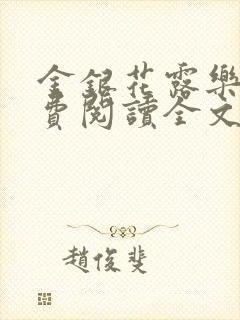 金銀花露樂
費閱讀全文
趙俊斐